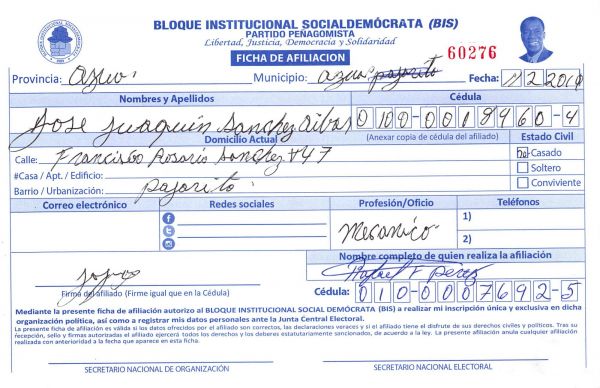 BLOQUE INSTITUCIONAL SOCIALDEMÓCRATA (BIS)
PARTIDO PEÑAGOMISTA
Libertad, Justicia, Democracia y Solidaridad
FICHA DE AFILIACION
60276
Provincia: Azua Municipio: Azua pajarito Fecha:
Nombres y Apellidos Cédula
Jose Juaquin Sanchez 010-0018960-4
Domicilio Actual (Anexar copia de cédula del afiliado) Estado Civil
Calle: Francisco Rosario Sanchez #47 Casado
#Casa / Apt. / Edificio: Soltero
Barrio / Urbanización: pajarito Conviviente
Correo electrónico Redes sociales Profesión/Oficio Teléfonos
Mecanico 1)
2)
Nombre completo de quien realiza la afiliación
Rafael F Perez
Firma del afiliado (Firme igual que en la Cédula) Cédula: 010-0007692-5
Mediante la presente ficha de afiliación autorizo al BLOQUE INSTITUCIONAL SOCIAL DEMÓCRATA (BIS) a realizar mi inscripción única y exclusiva en dicha
organización política, así como a registrar mis datos personales ante la Junta Central Electoral.
La presente ficha de afiliación es válida si los datos ofrecidos por el afiliado son correctos, las declaraciones veraces y si el afiliado tiene el disfrute de sus derechos civiles y políticos. Tras su
recepción, sello y firmas autorizadas el afiliado ejercerá todos los derechos y los deberes estatutariamente sancionados, de acuerdo a la ley. La presente afiliación anula cualquier afiliación
realizada con anterioridad a la fecha que aparece en esta ficha.
SECRETARIO NACIONAL DE ORGANIZACIÓN SECRETARIO NACIONAL ELECTORAL